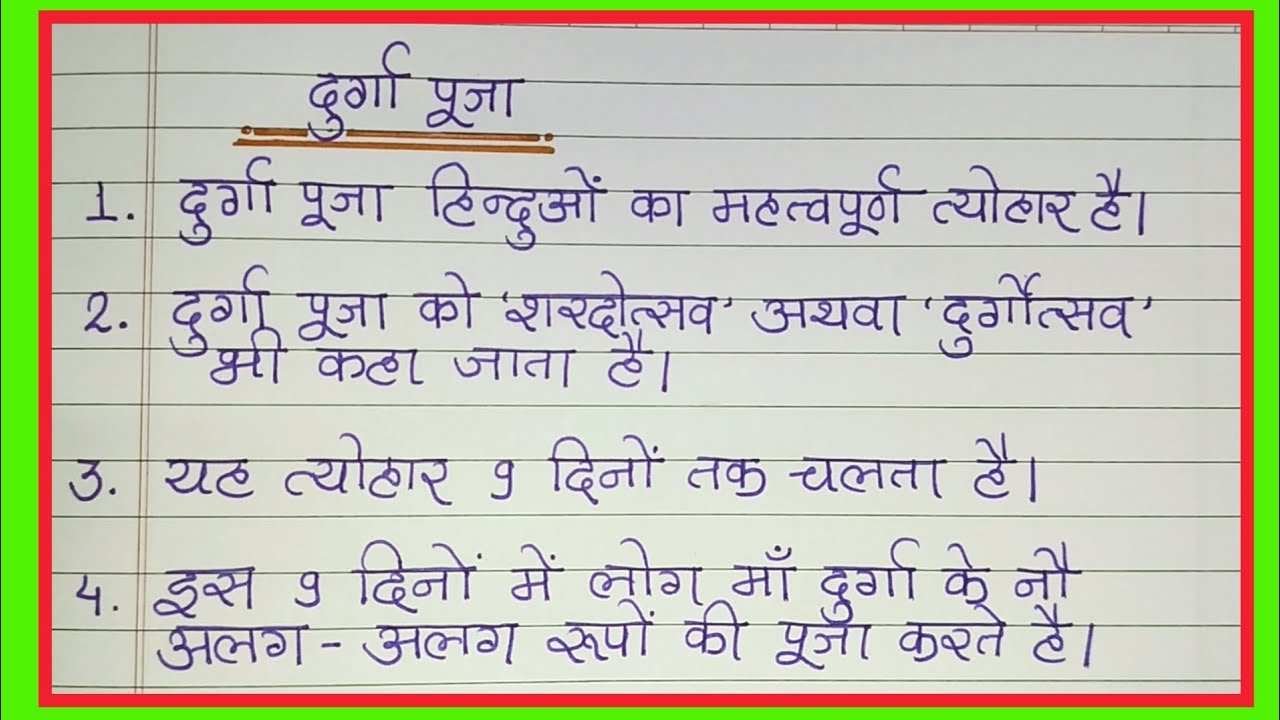 दुर्गा पूजा
1. दुर्गा पूजा हिन्दुओं का महत्वपूर्ण त्योहार है।
2. दुर्गा पूजा को 'शरदोत्सव' अथवा 'दुर्गोत्सव'
भी कहा जाता है।
3. यह त्योहार 9 दिनों तक चलता है।
4. इस 9 दिनों में लोग माँ दुर्गा के नौ
अलग - अलग रूपों की पूजा करते है।